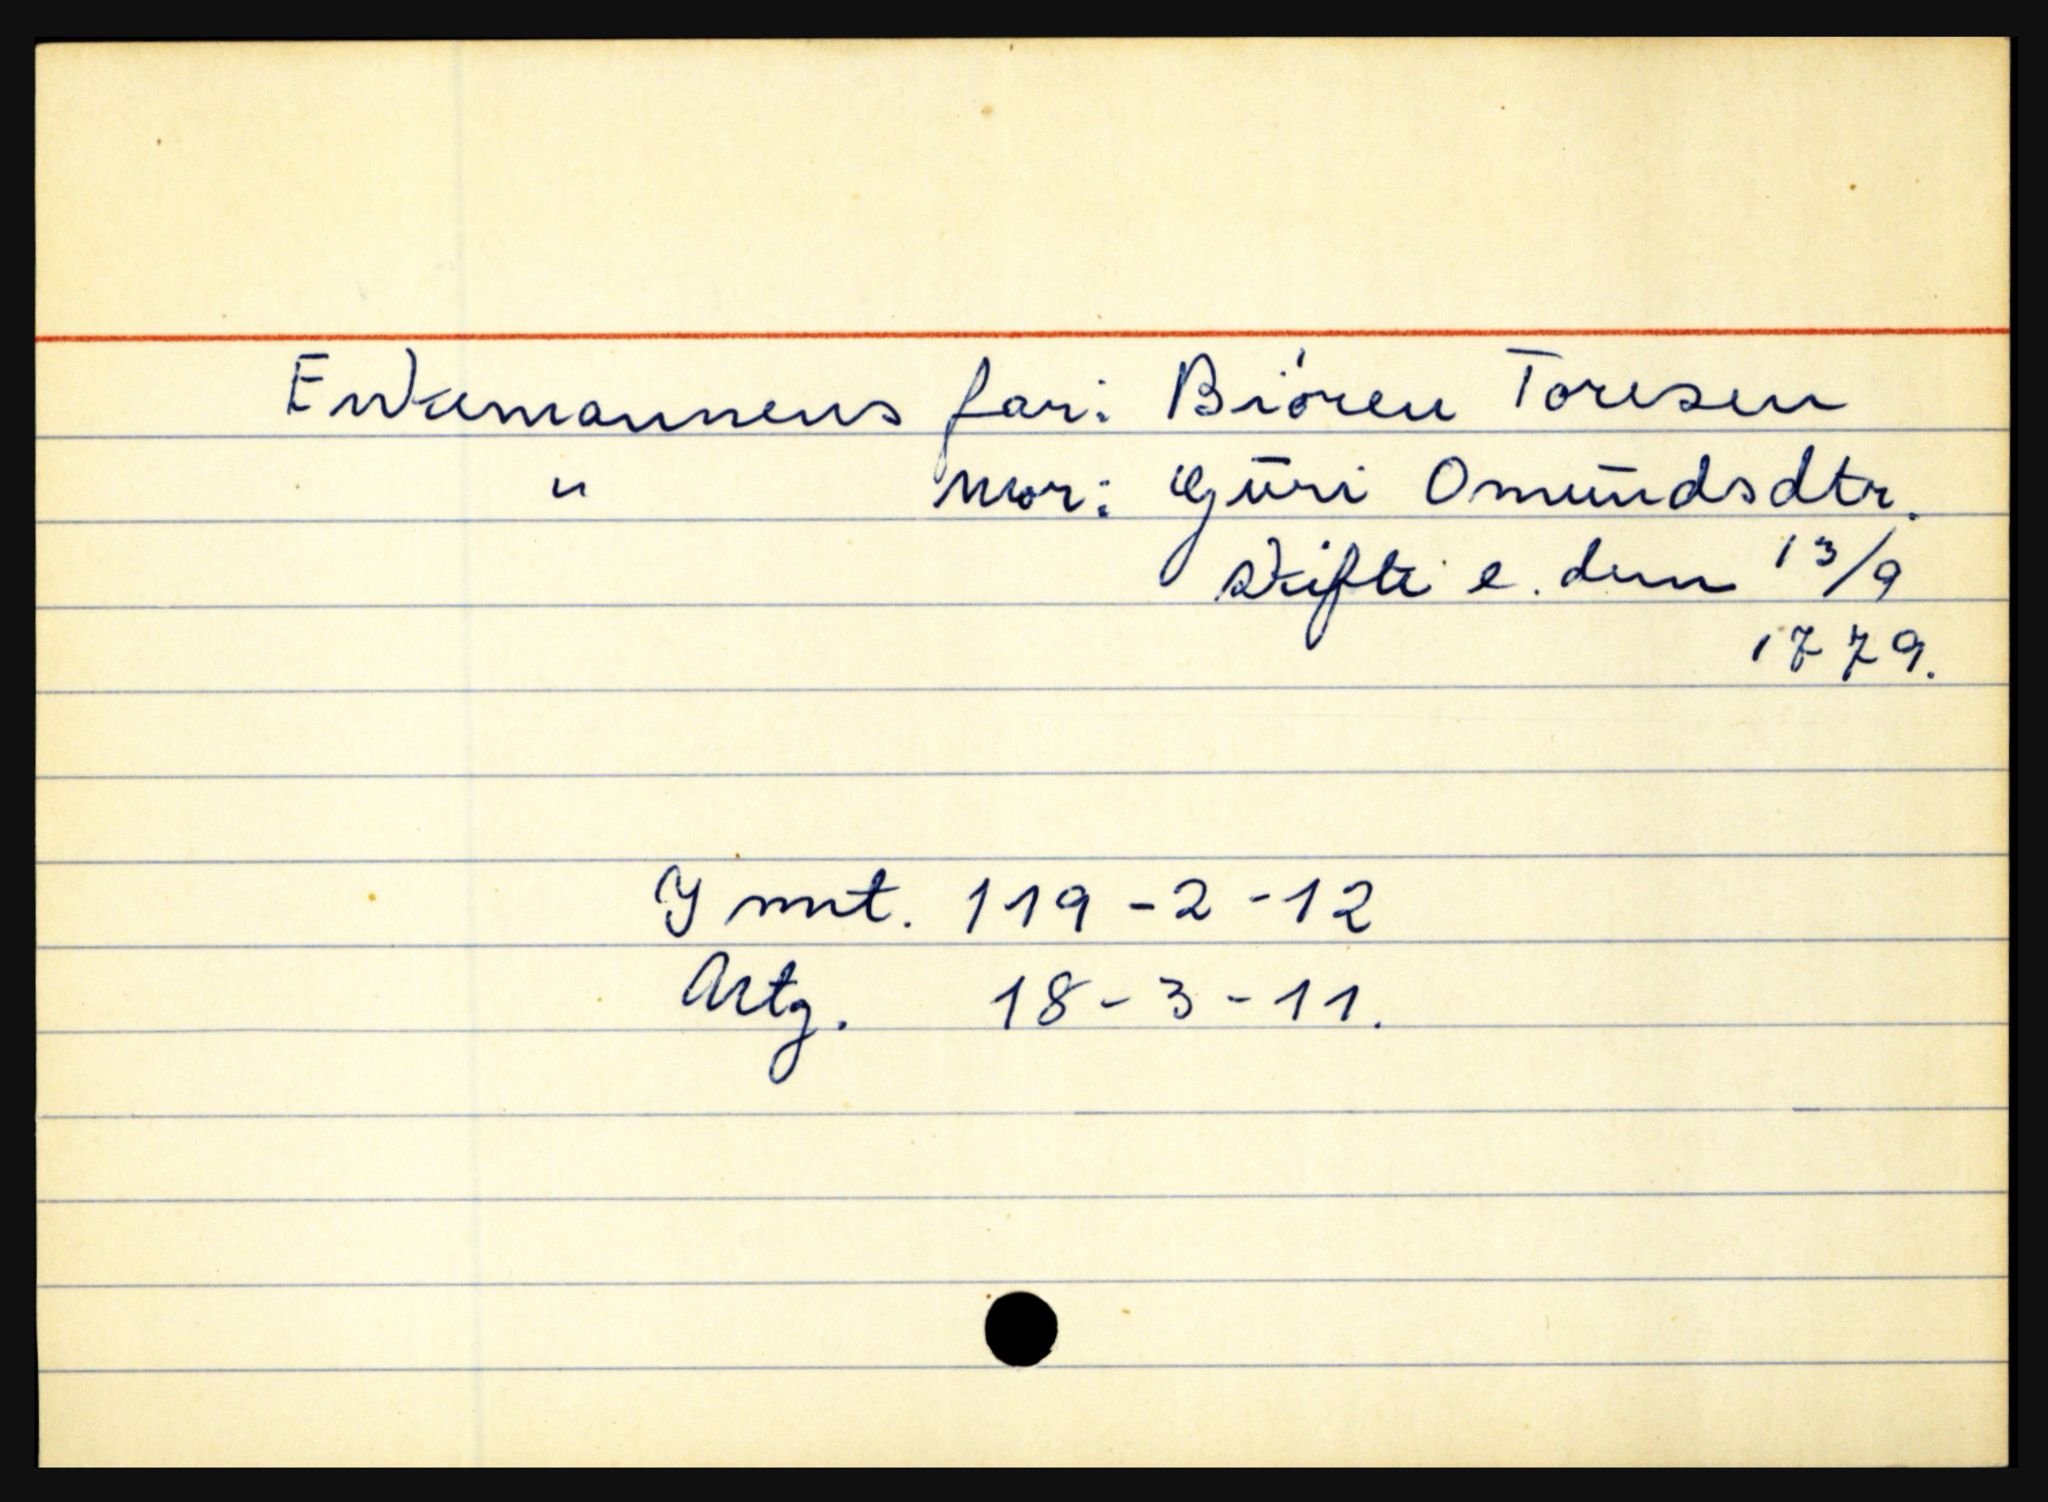 Enkemannens far: Biören Toresen
" mor: Gūri Omūndsdtr.
skifte e. dem 13/9
1779.
I mt. 119-2-12
Artg. 18-3-11.